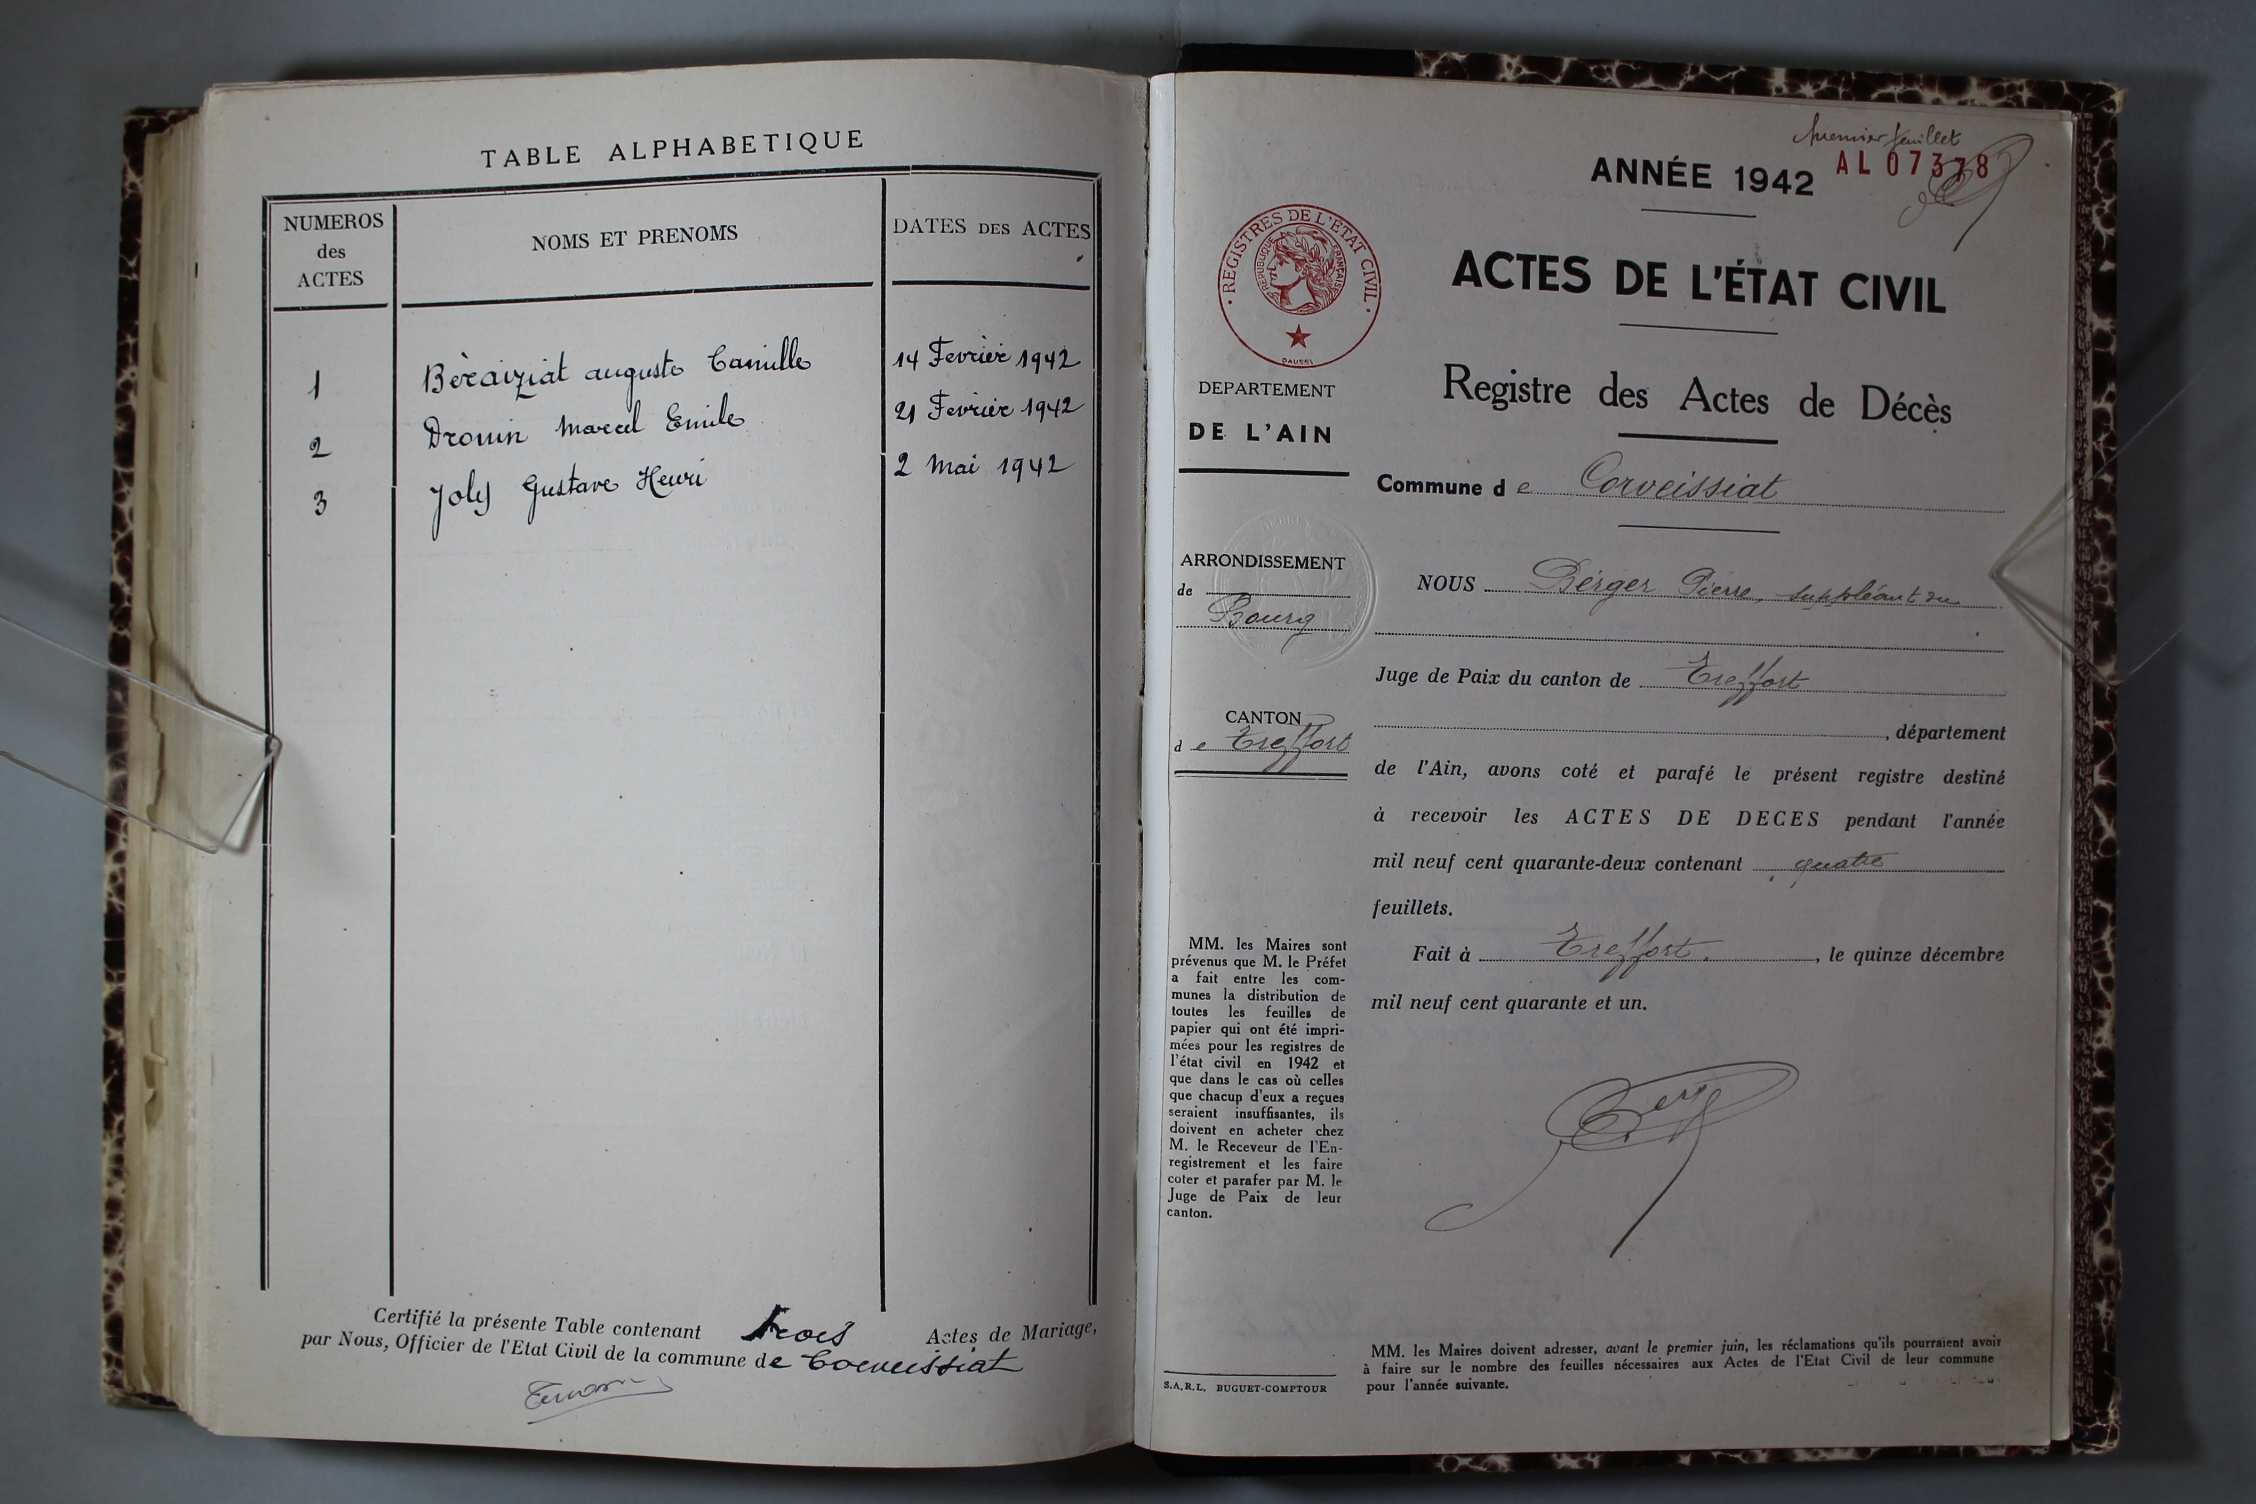 TABLE ALPHABETIQUE
NUMEROS
des
ACTES
NOMS ET PRENOMS
DATES DES ACTES
1 Bèraiziat auguste Camille 14 Fevrier 1942
2 Drouin Marcel Emile 21 Fevrier 1942
3 Joly Gustave Henri 2 Mai 1942
Certifié la présente Table contenant trois Actes de Mariage,
par Nous, Officier de l'Etat Civil de la commune de Corveissiat
premier feuillet
AL 07378
ANNÉE 1942
REGISTRES DE L'ÉTAT CIVIL
RÉPUBLIQUE FRANÇAISE
DAUSSI
ACTES DE L'ÉTAT CIVIL
Registre des Actes de Décès
DEPARTEMENT
DE L'AIN
Commune de Corveissiat
ARRONDISSEMENT
de
Bourg
CANTON
de Treffort
NOUS Berger Pierre, suppléant du
Juge de Paix du canton de Treffort
, département
de l'Ain, avons coté et parafé le présent registre destiné
à recevoir les ACTES DE DECES pendant l'année
mil neuf cent quarante-deux contenant quatre
feuillets.
Fait à Treffort, le quinze décembre
mil neuf cent quarante et un.
MM. les Maires sont
prévenus que M. le Préfet
a fait entre les com-
munes la distribution de
toutes les feuilles de
papier qui ont été impri-
mées pour les registres de
l'état civil en 1942 et
que dans le cas où celles
que chacup d'eux a reçues
seraient insuffisantes, ils
doivent en acheter chez
M. le Receveur de l'En-
registrement et les faire
coter et parafer par M. le
Juge de Paix de leur
canton.
S.A.R.L. BUGUET-COMPTOUR
MM. les Maires doivent adresser, avant le premier juin, les réclamations qu'ils pourraient avoir
à faire sur le nombre des feuilles nécessaires aux Actes de l'Etat Civil de leur commune
pour l'année suivante.